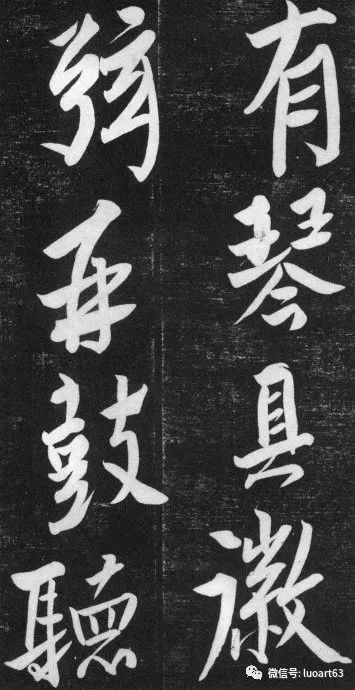 有琴具徽
弦再鼓聽
微信号: luoart63